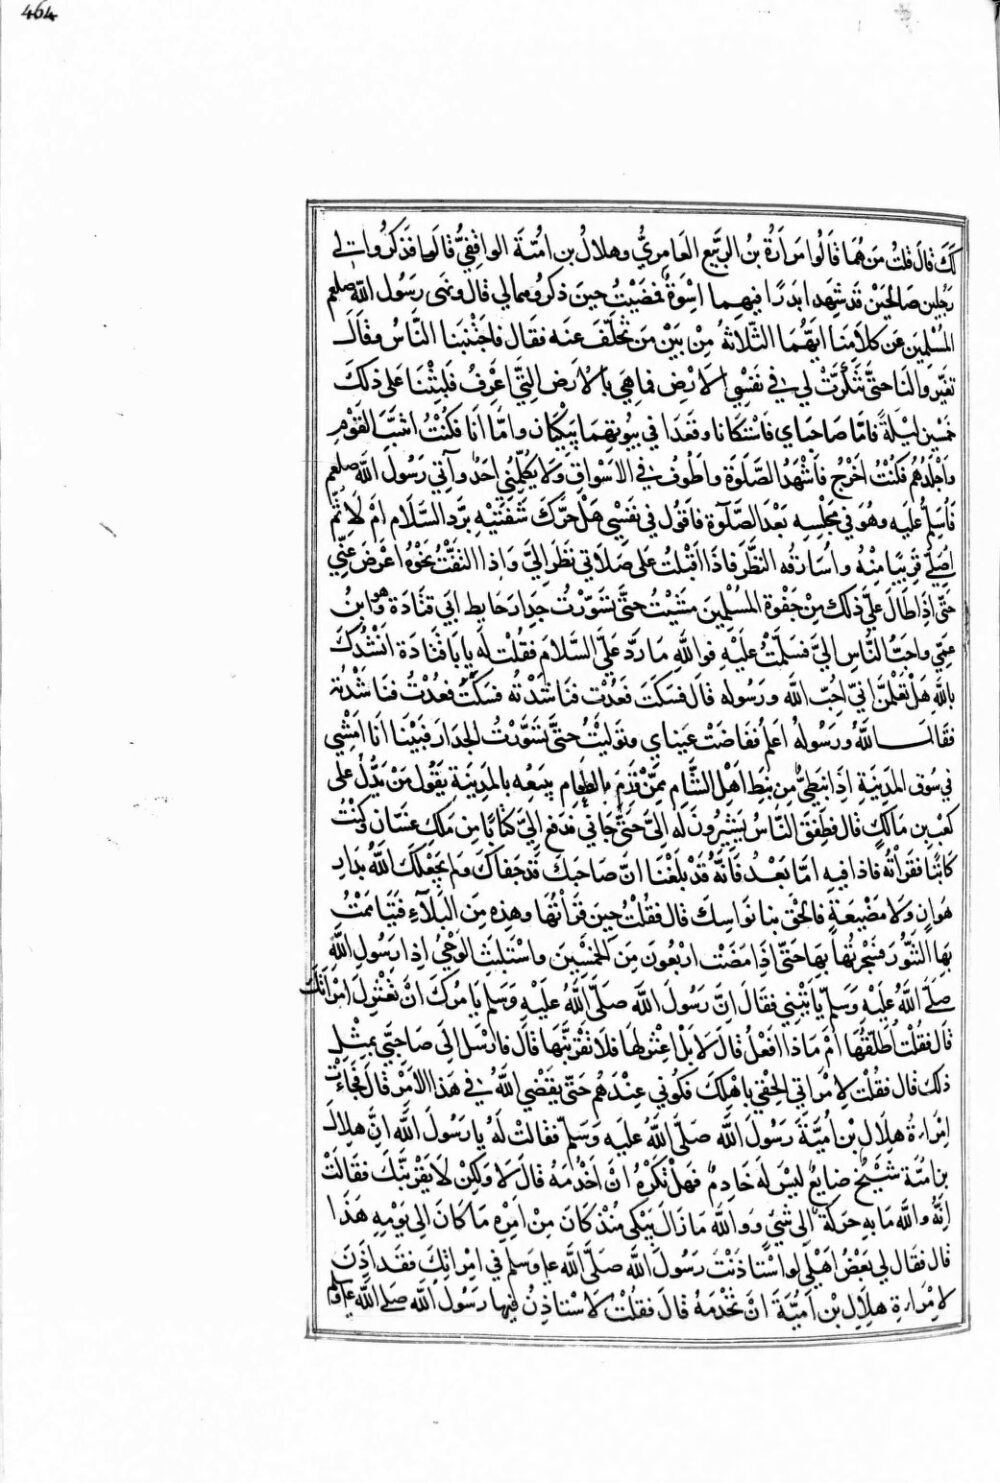 464
لَكَ قَالَ قُلْتُ مَنْ هُمَا قَالُوا مَرَارَةُ بْنُ الرَّبِيعِ العَامِرِيُّ وهِلَالُ بن امَيَّةَ الواقِفِيُّ قَالَ فَذَكَرُوا لي
رَجُلين صَالِحَيْنِ قَدْ شَهِدا بَدْرًا فيهِمَا اسْوَةٌ فَمَضَيْتُ حِينَ ذكرُوهما لي قال ونَهى رَسُول اللّه صلعم
المُسْلِمين عَن كلَامِنَا ايُّهَا الثَّلاثةُ مِنْ بَيْنِ مَن تَخَلَّفَ عَنه فقَال فَاجْتَنبنَا النَّاسُ وقَالَ
تغيّروا لنَا حتى تَنَكَّرَتْ لي في نَفْسِي الارْض فما هِيَ بالارض التِي اعْرِفُ فَلَبِثْنَا عَلى ذلكَ
خمْسِين لَيْلَةً فامّا صَاحِبَاي فَاسْتكانا وقَعَدا في بيوتهِمَا يَبْكِيَان وامّا انا فكُنْتُ اشَبَّ القَوْمِ
واجْلَدهُم فكنتُ اخْرُج فاشْهَدُ الصَّلَوةَ واطُوفُ في الاسْوَاق وَلَا يُكَلِّمُني احَدٌ وآتي رَسُول اللّه صلعم
فَأسلِّمُ عليه وهُوَ في مَجْلِسِه بَعْدَ الصَّلَوة فاقول في نفسِي هَلْ حَرَّكَ شفَتَيْهِ برَدِّ السَّلَام امْ لَا ثمّ
اصلّي قَرِيبًا مِنْهُ واسَارقه النَّظَر فاذا اقْبَلْتُ عَلى صَلاتي نَظَر الَيَّ وَاِذا التفَتُّ نحْوَهُ اعْرَضَ عَنِّي
حَتّى اذا طَالَ عَلَيَّ ذلك مِنْ جَفْوَةِ المُسْلِمِينَ مشيْتُ حتّى تسَوَّرْتُ جِدَارَ حَايط ابي قتَادَة وهُو ابْنُ
عَمِّي واحَبّ النَّاسِ اليَّ فَسَلّمْتُ عَلَيْهِ فواللّهِ مَا رَدَّ عَلَيَّ السَّلَامَ فَقُلْتُ لَه يابَا قتَادَة انْشُدُكَ
باللَّهِ هَل تَعْلَمَنَّ انّي احِبّ اللّه ورَسُوله قَالَ فسَكَتَ فَعُدْت فنَاشَدْتُه فسَكتَ فعُدْتُ فنَاشَدْتُه
فقَالَ اللّهُ ورَسُولُهُ اعْلمُ ففَاضَتْ عَيْنَاي وتوَلَّيْتُ حتّى تسَوَّرْتُ الجدَار فَبيْنا انَا امْشِي
في سُوق المَدِينَةِ اذَا نبَطِيٌّ مِن نبَط اَهْلِ الشَّام مِمَّنْ قَدِمَ بالطّعام يبيعُه بالمَدِينَةِ يَقُول مَنْ يَدُلّ على
كعْب بن مَالكٍ قال فطَفِقَ النَّاسُ يُشِيرُونَ لَه اليَّ حَتَّى جَاني فدَفع اليَّ كتَابًا من مَلِك غسَّان وكُنْتُ
كاتِبًا فقَراْتُه فاذا فيهِ امّا بَعْدُ فَانّهُ قَدْ بَلَغَنا انّ صَاحبَكَ قَدْ جَفاكَ وَلم يَجْعَلكَ اللّهُ بدَارِ
هَوَانٍ وَلا مَضْيعَةٍ فالحَقْ بنا نوَاسِكَ قال فقُلتُ حِينَ قرَاْتُها وهذِه مِنَ البَلآءِ فتيَامَمْتُ
بهَا التَّنُّورَ فسَجَرْتُها بهَا حتّى اذَا مَضَتْ ارْبَعُونَ مِنَ الخَمْسِينَ واسْتَلبَثَ الوَحْيُ اِذا رَسُول اللّه
صلَّى اللّهُ عَلَيْهِ وَسَلّم يَاتِيْني فقَالَ اِنّ رَسُولَ اللّه صَلَّى اللّهُ عَلَيْهِ وَسَلم يَامُرُكَ انْ تَعْتَزِلَ امْرَاتكَ
قَال فَقُلْتُ أُطَلِّقُها امْ مَاذا افعَلُ قَالَ لا بَلْ اعْتَزِلهَا فلَا تَقْرَبَنَّهَا قَالَ فارْسَلَ اِلى صَاحِبَيَّ بمِثْل
ذلك قَال فقُلْت لِامْرَاتي الحَقِي باهْلِكِ فكُونِي عِنْدَهُم حَتّى يَقْضِيَ اللّهُ في هَذا الامْرِ قَالَ فجَاءَتْ
امْرَاةُ هِلَالِ بْن امَيَّةَ رَسُولَ اللَّه صَلَّى اللَّهُ عَليه وَسَلّم فقَالتْ لَهُ يا رَسُولَ اللّه انّ هِلَال
بن اُمَيّة شَيْخٌ ضايعٌ ليْسَ لَه خَادِمٌ فهَلْ تكْرَهُ انْ اخْدُمَهُ قَالَ لَا وَلكِنْ لَا يَقْرَبَنَّكِ فقَالَتْ
اِنّهُ واللّه مَا بهِ حرَكَةٌ اِلى شَيْءٍ ووَاللّه مَا زَالَ يَبْكِي مُنْذُ كَانَ مِنْ امْرِه مَا كَانَ اِلى يَوْمِهِ هَذَا
قال فقَال لي بَعْضُ اهْلي لوِ اسْتَاذَنْتَ رَسُولَ اللّه صَلَّى اللّه ع وسَلم في امْرَاتِكَ فقَد اذِنَ
لامْرَاةِ هِلَالِ بْن امَيَّةَ انْ تَخْدمَهُ قَالَ فقُلتُ لا اسْتاذِنُ فيها رَسُولَ اللّه صلى اللّه ع وسلم